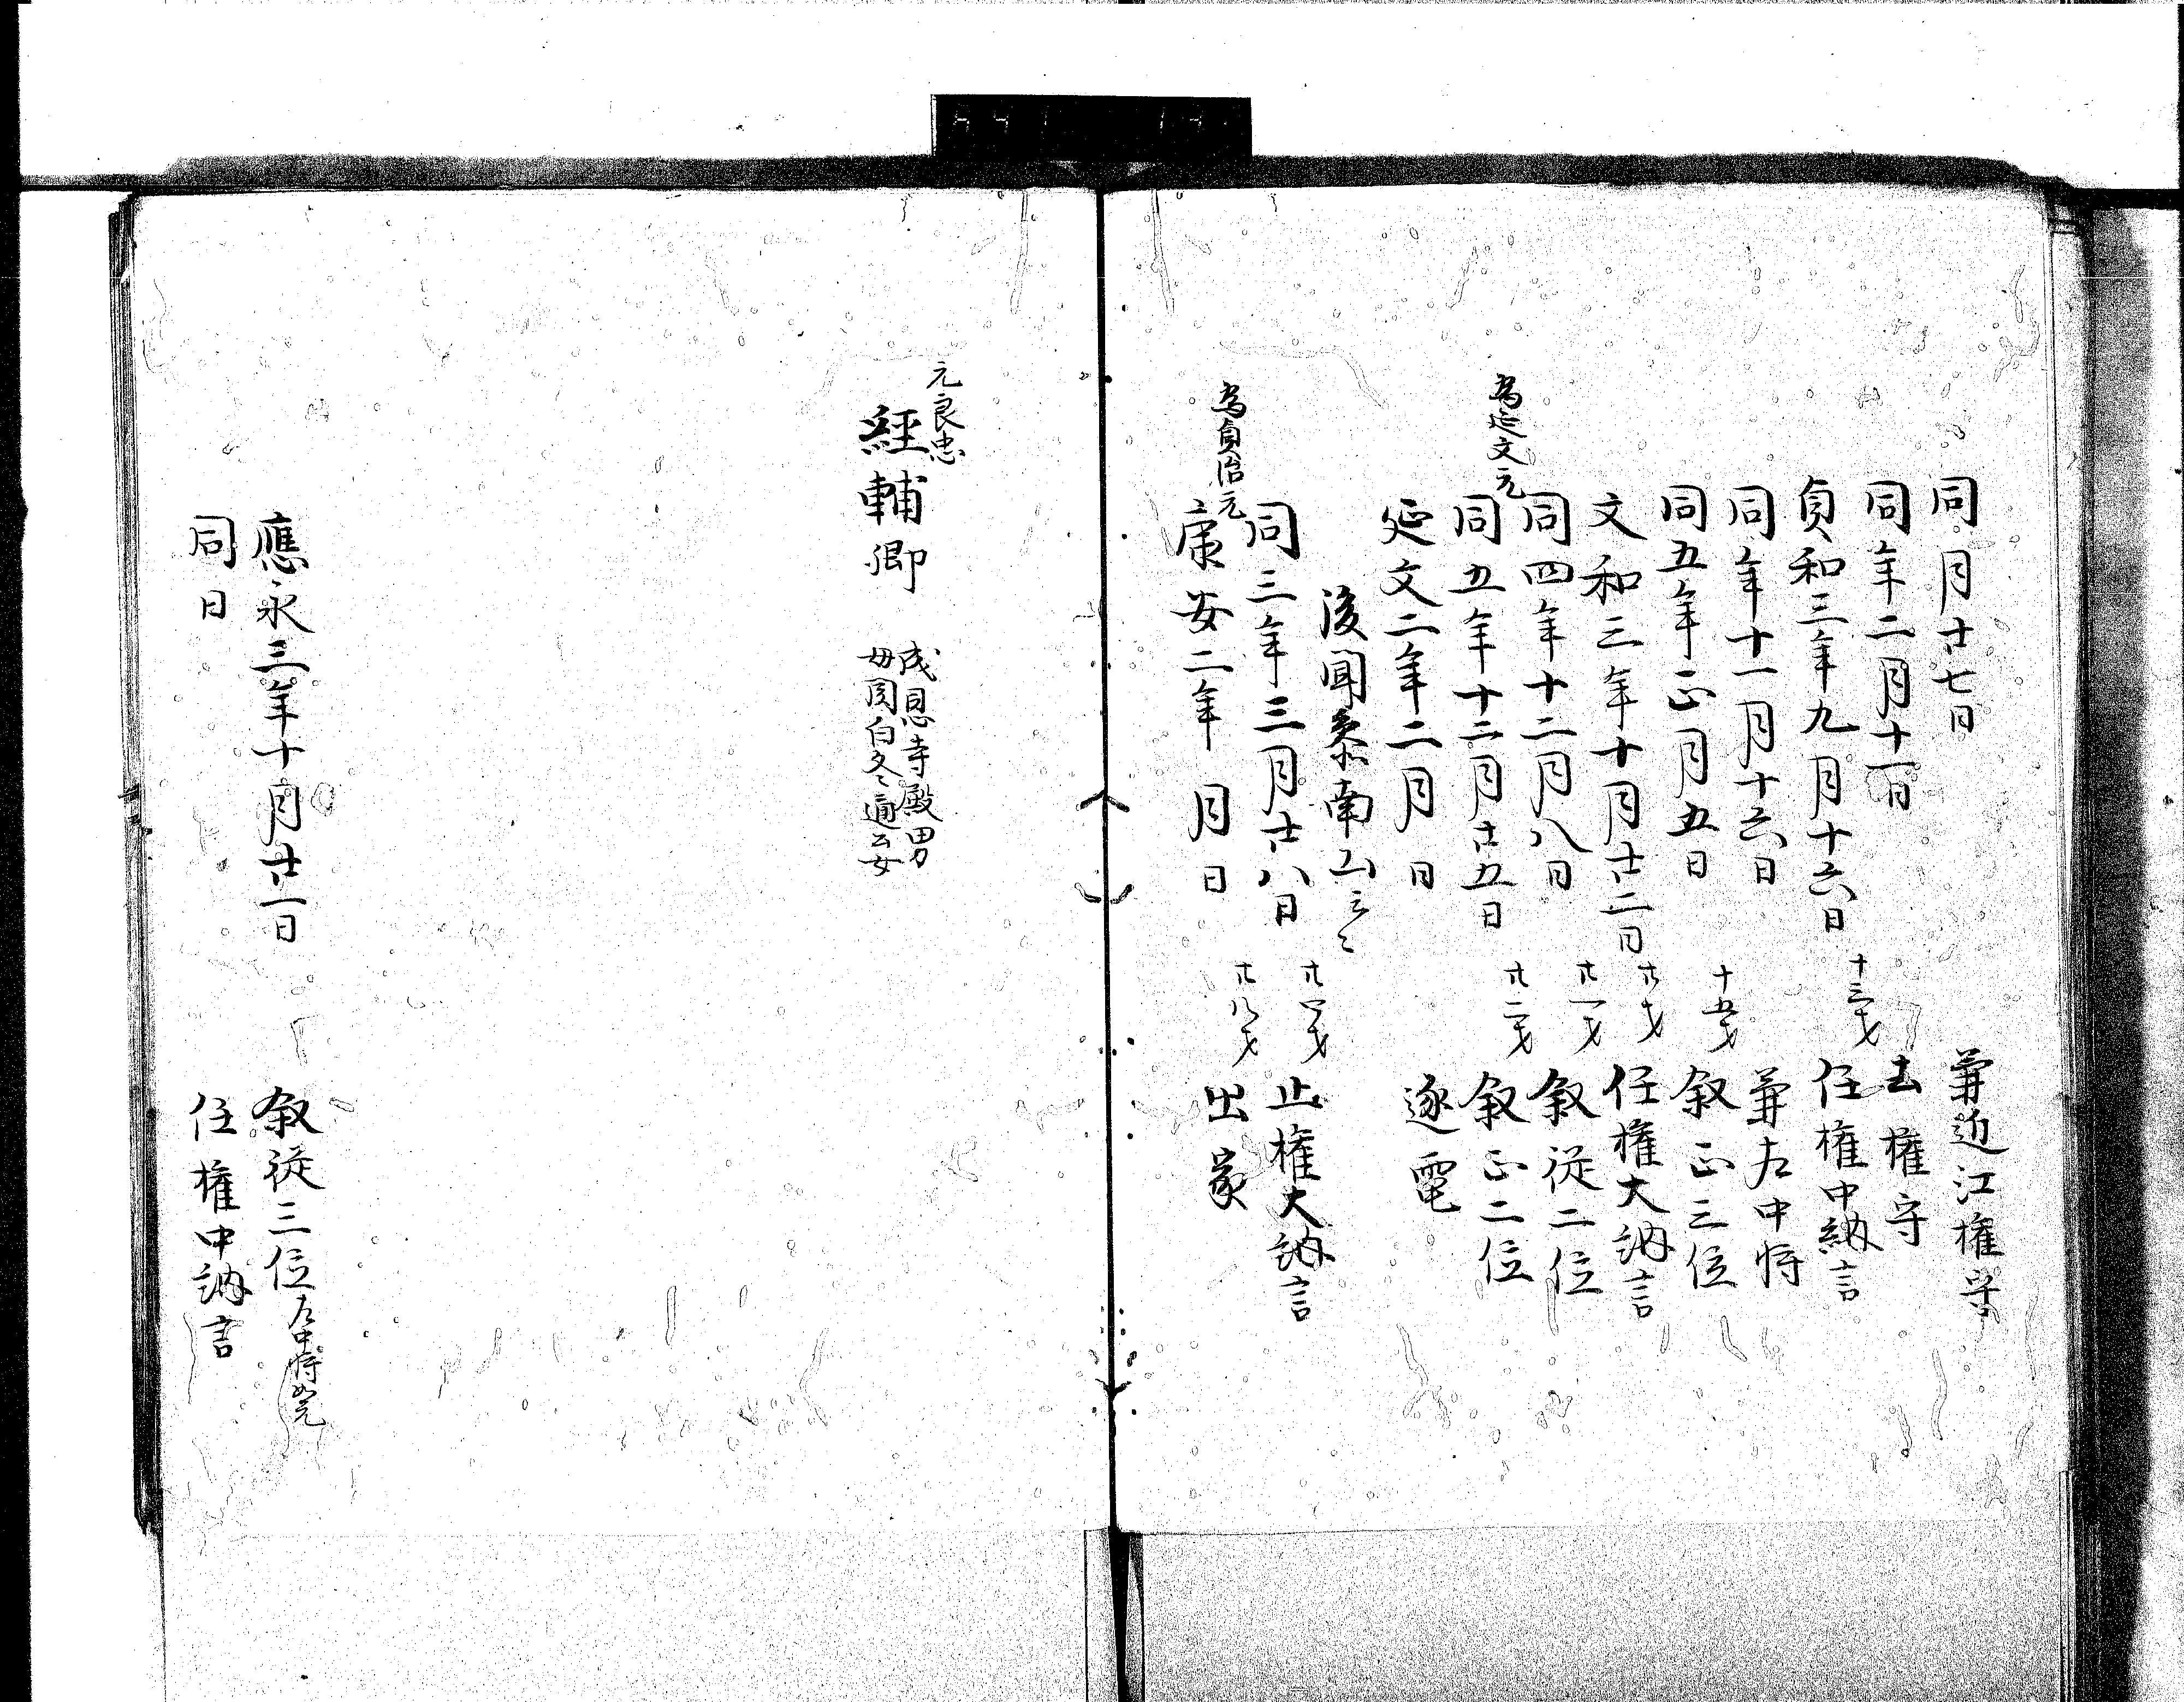 同月廿七日　兼近江権守
同年二月十一日　去権守
貞和三年九月十六日　十三才　任権中納言
同年十一月十六日　兼左中将
同五年正月五日　十五才　叙正三位
文和三年十月廿二日　廿才　任権大納言
同四年十二月八日　廿一才　叙従二位
為延文元
同五年十二月廿五日　廿二才　叙正二位
延文二年二月　日　逐電
後聞参南山云々
同三年三月廿八日　廿四才　止権大納言
為貞治元
康安二年　月　日　廿八才　出家
元良忠
経輔卿
成恩寺殿男
母関白冬通公女
應永三年十月廿一日　叙従三位　左中将如元
同日　任権中納言